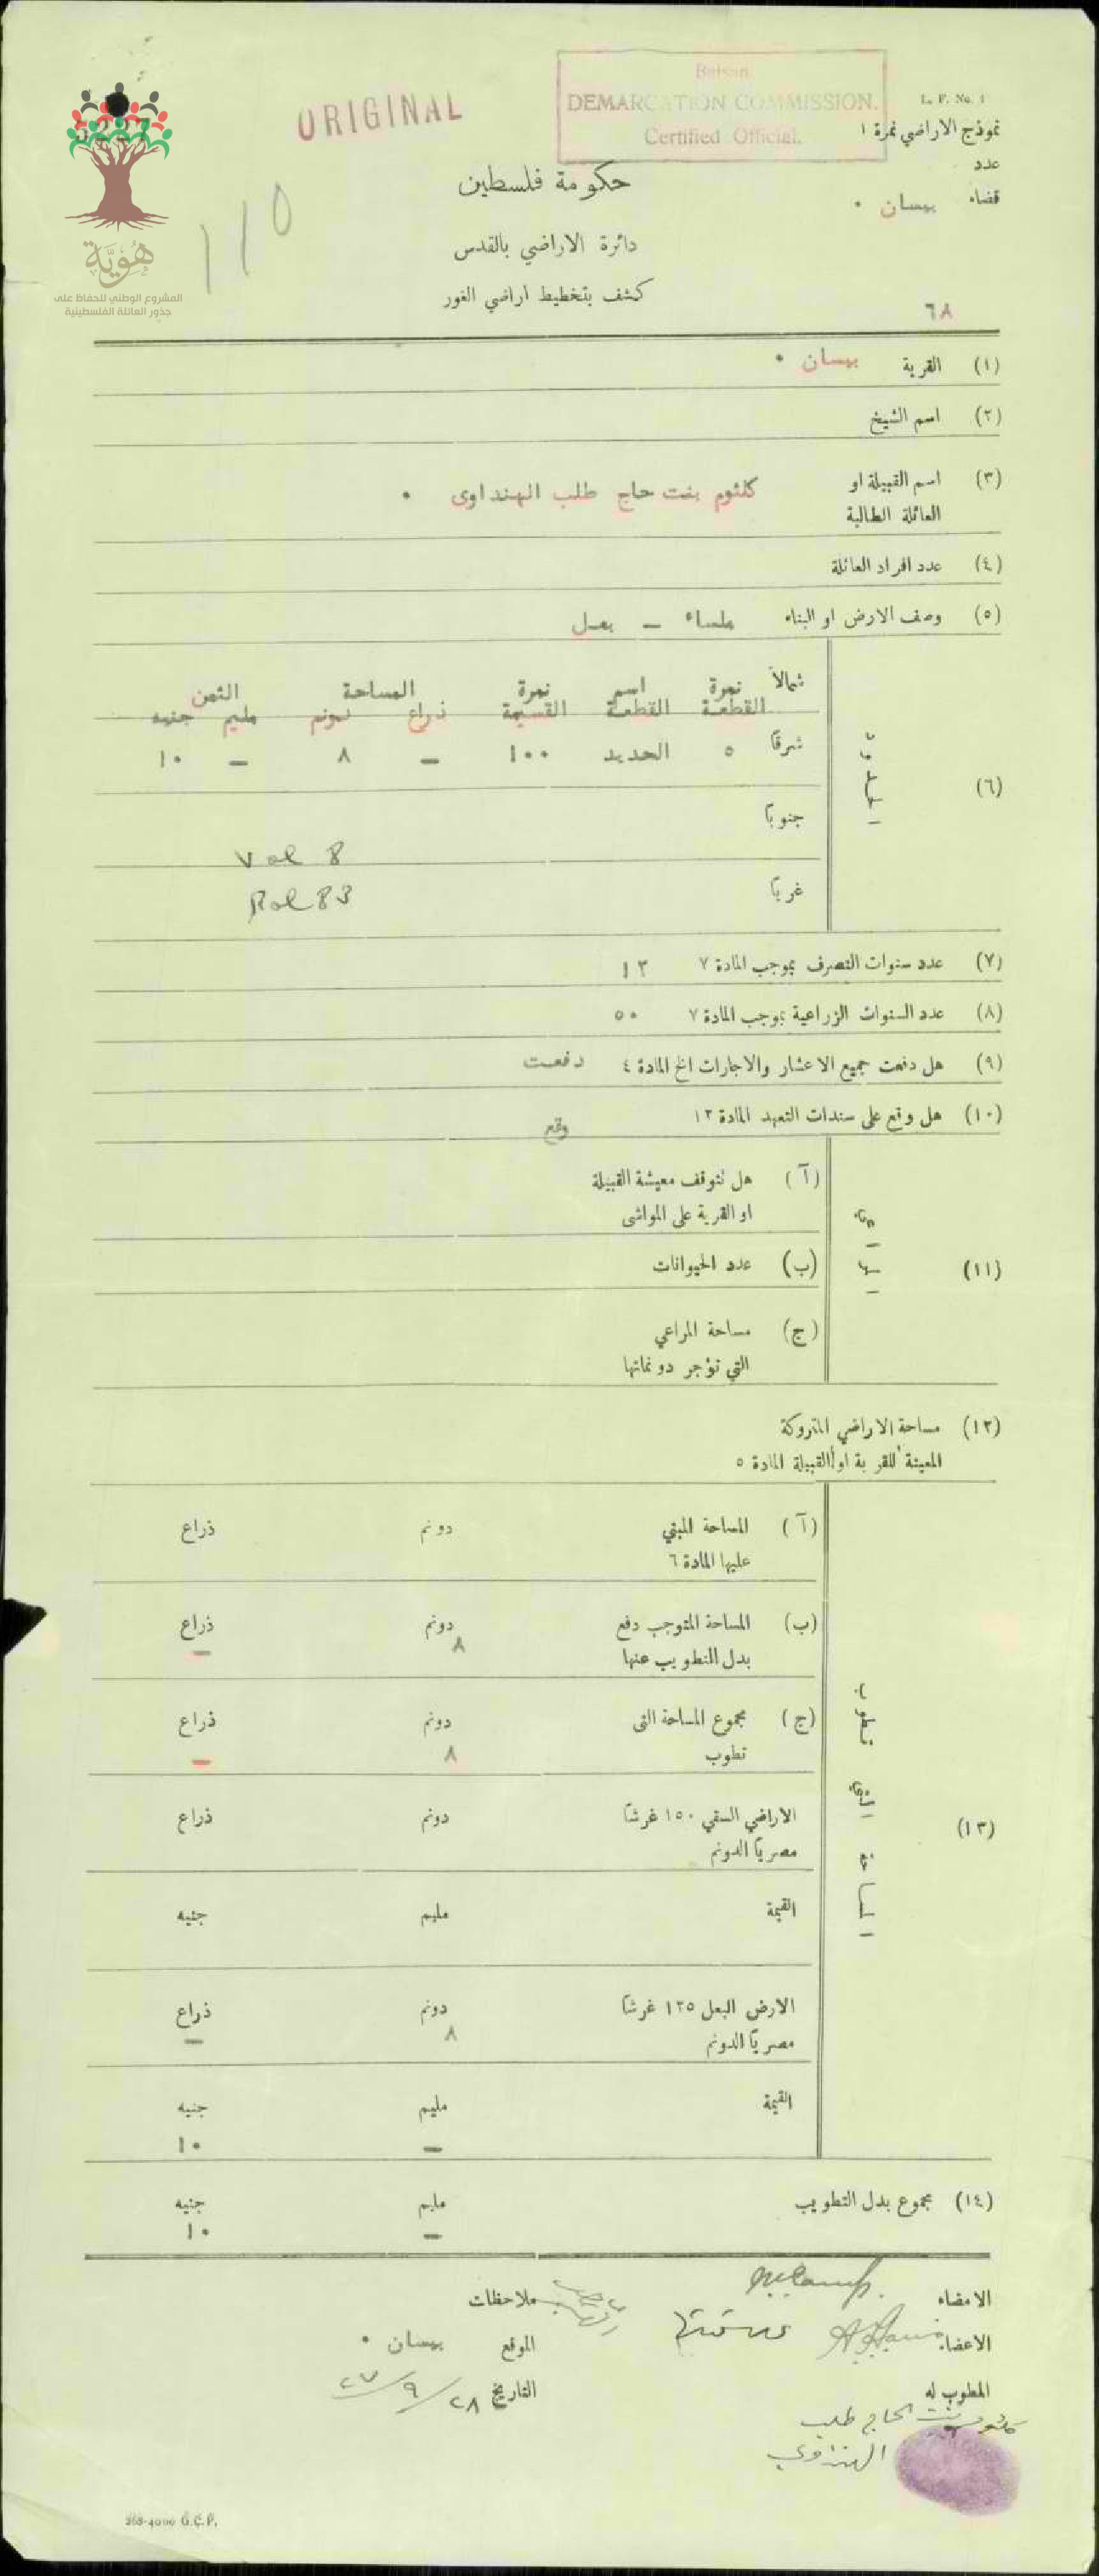 ORIGINAL
Beisan
DEMARCATION COMMISSION.
Certified Official.
L. F. No. 1
نموذج الاراضي نمرة ١
عدد
قضاء بيسان ٠
هُوِيَّة
المشروع الوطني للحفاظ على
جذور العائلة الفلسطينية
110
حكومة فلسطين
دائرة الاراضي بالقدس
كشف بتخطيط اراضي الغور
٦٨
(١) القرية بيسان ٠
(٢) اسم الشيخ
(٣) اسم القبيلة او
العائلة الطالبة كلثوم بنت حاج طلب الهنداوى ٠
(٤) عدد افراد العائلة
(٥) وصف الارض او البناء ملساء — بعل
(٦) الحدود
شمالاً
نمرة القطعة اسم القطعة نمرة القسيمة المساحة الثمن
ذراع دونم مليم جنيه
شرقاً ٥ الحديد ١٠٠ — ٨ — ١٠
جنوباً
Vol 8
غرباً
Fol 83
(٧) عدد سنوات التصرف بموجب المادة ٧ ١٣
(٨) عدد السنوات الزراعية بموجب المادة ٧ ٥٠
(٩) هل دفعت جميع الاعشار والاجارات الخ المادة ٤ دفعت
(١٠) هل وقع على سندات التعهد المادة ١٢ وقع
(١١)
(آ) هل تتوقف معيشة القبيلة
او القرية على المواشى
(ب) عدد الحيوانات
(ج) مساحة المراعي
التي تؤجر دونماتها
(١٢) مساحة الاراضي المتروكة
المعينة للقرية او القبيلة المادة ٥
(١٣) المساحة التي تطوب
(آ) المساحة المبني دونم ذراع
عليها المادة ٦
(ب) المساحة المتوجب دفع دونم ذراع
بدل التطويب عنها ٨ —
(ج) مجموع المساحة التى دونم ذراع
تطوب ٨ —
الاراضي السقي ١٥٠ غرشاً دونم ذراع
مصرياً الدونم
القيمة مليم جنيه
الارض البعل ١٢٥ غرشاً دونم ذراع
مصرياً الدونم ٨ —
القيمة مليم جنيه
— ١٠
(١٤) مجموع بدل التطويب مليم جنيه
— ١٠
الامضاء ملاحظات
الاعضاء الموقع بيسان ٠
المطوب له التاريخ ٢٨/٩/٢٧
كلثوم بنت الحاج طلب
الهنداوي
363-4000 G.C.P.